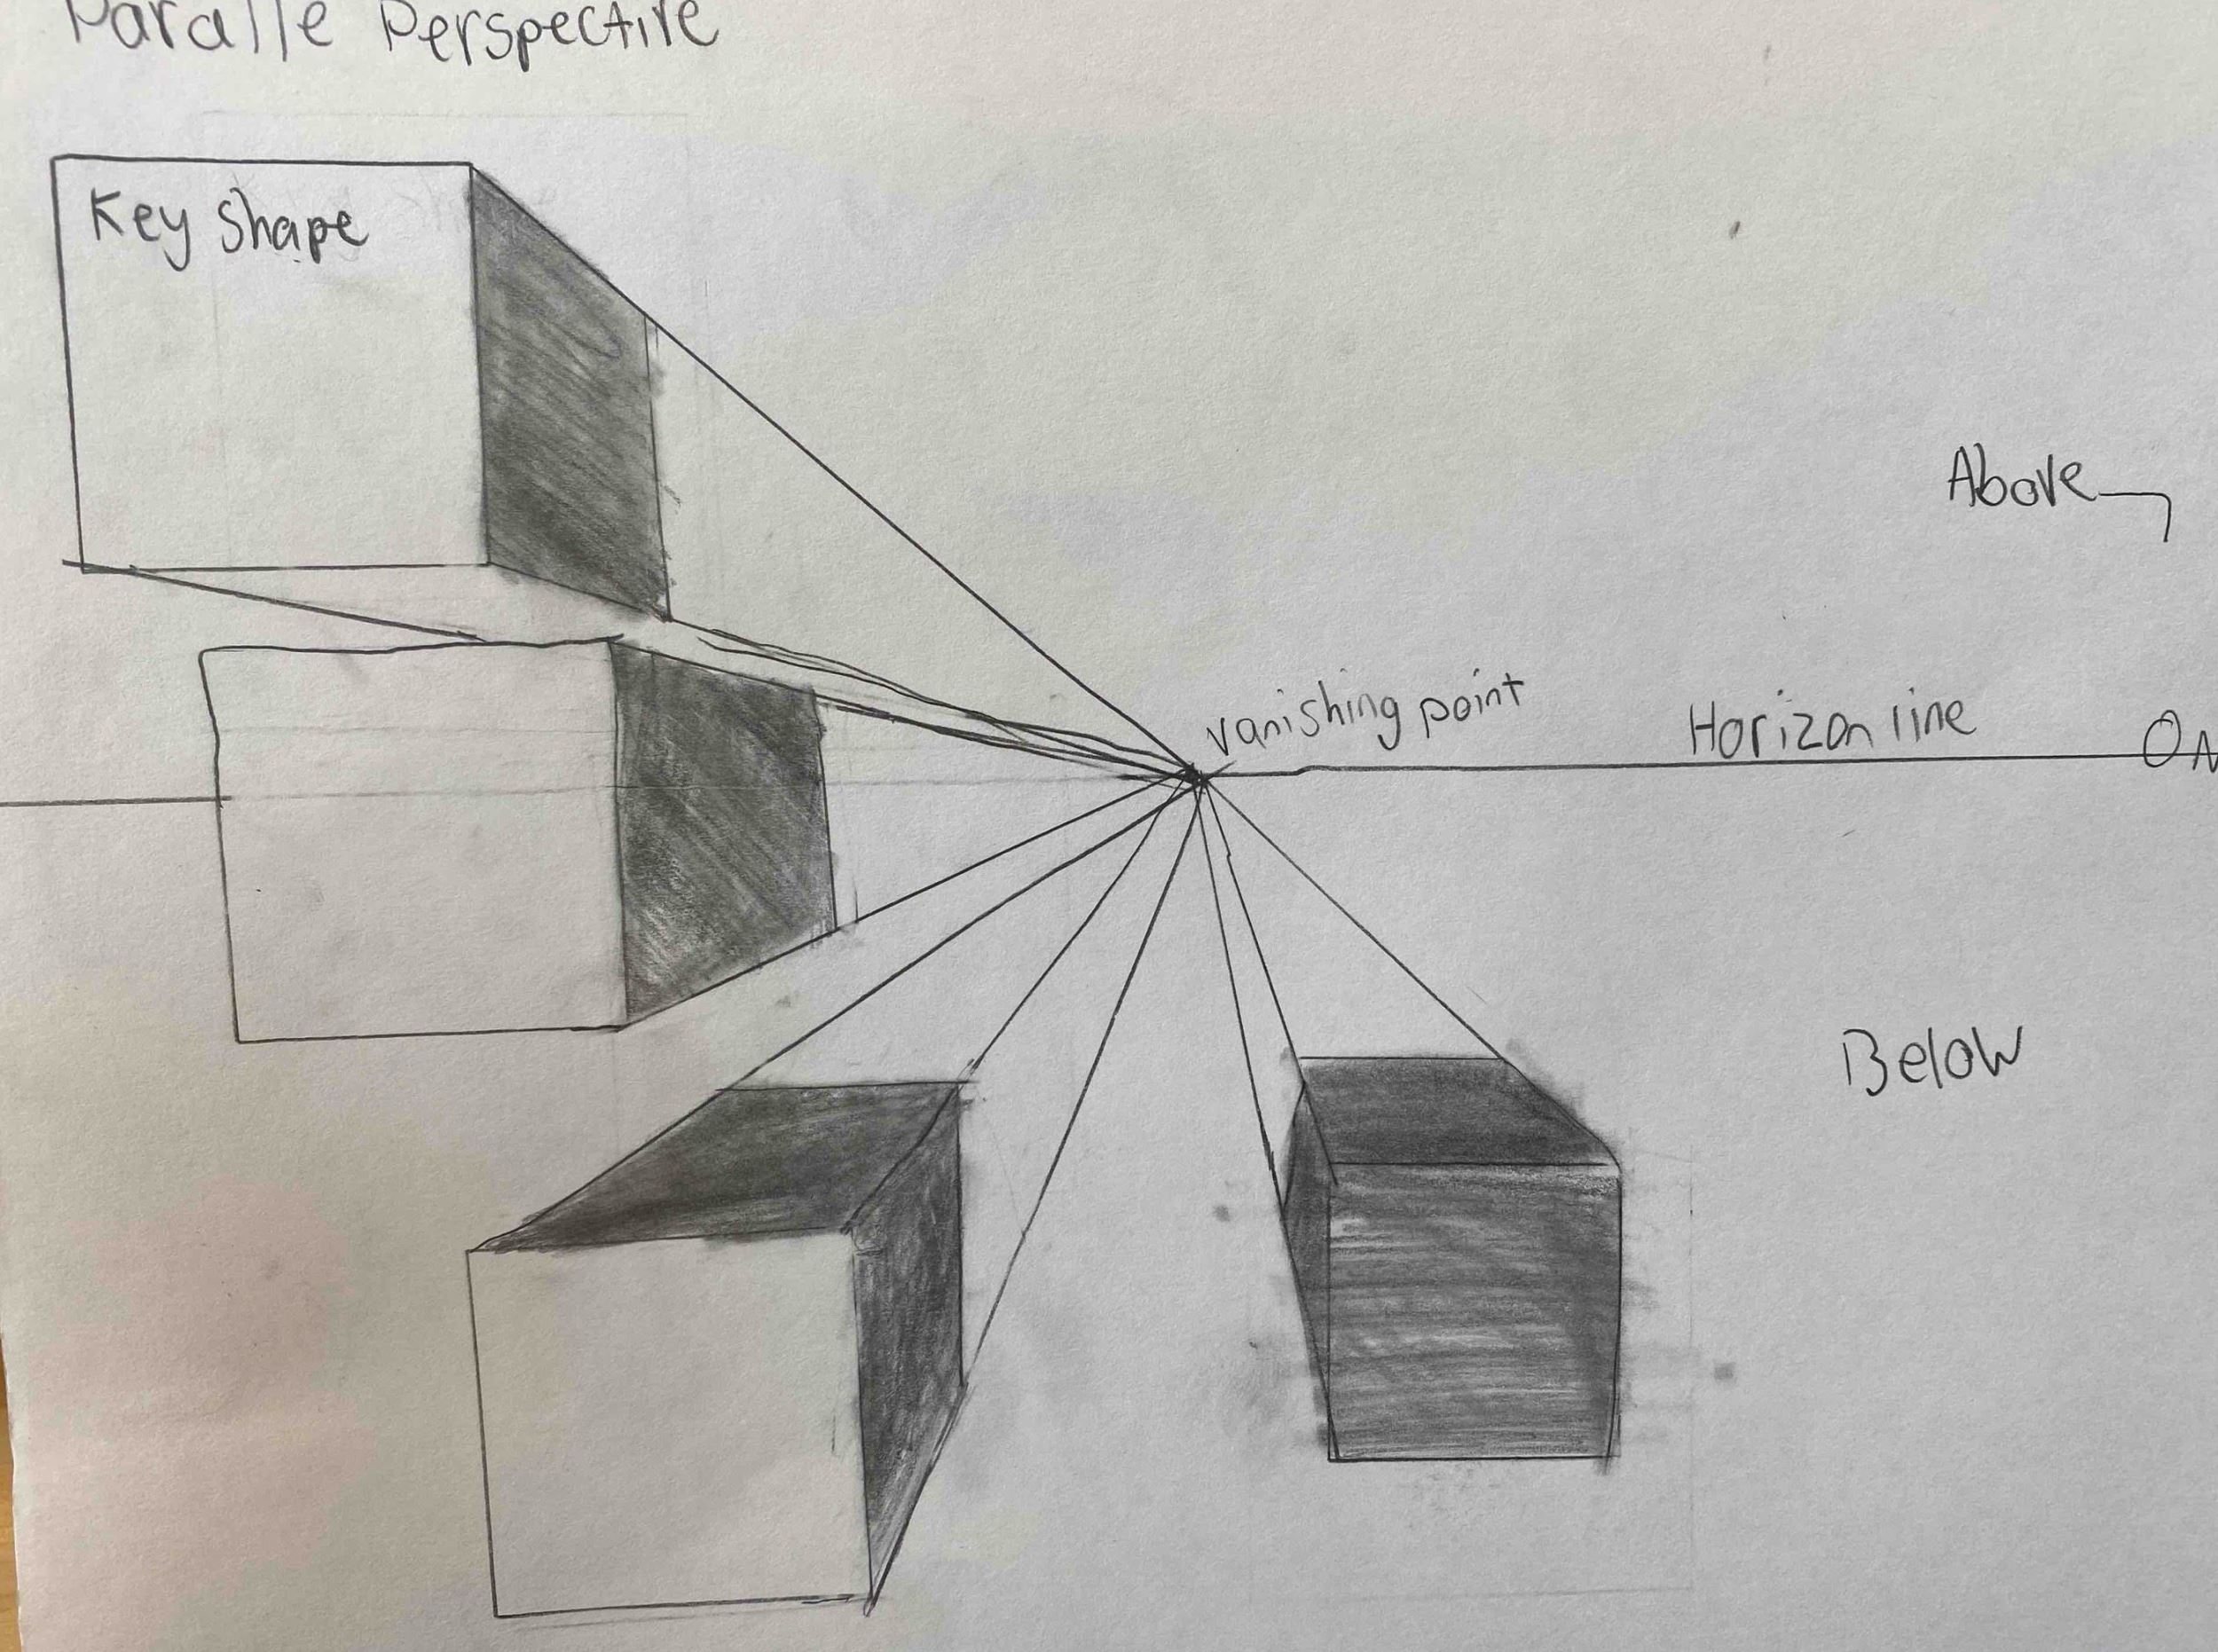 Paralle Perspective
Key Shape
Above
vanishing point
Horizon line
ON
Below